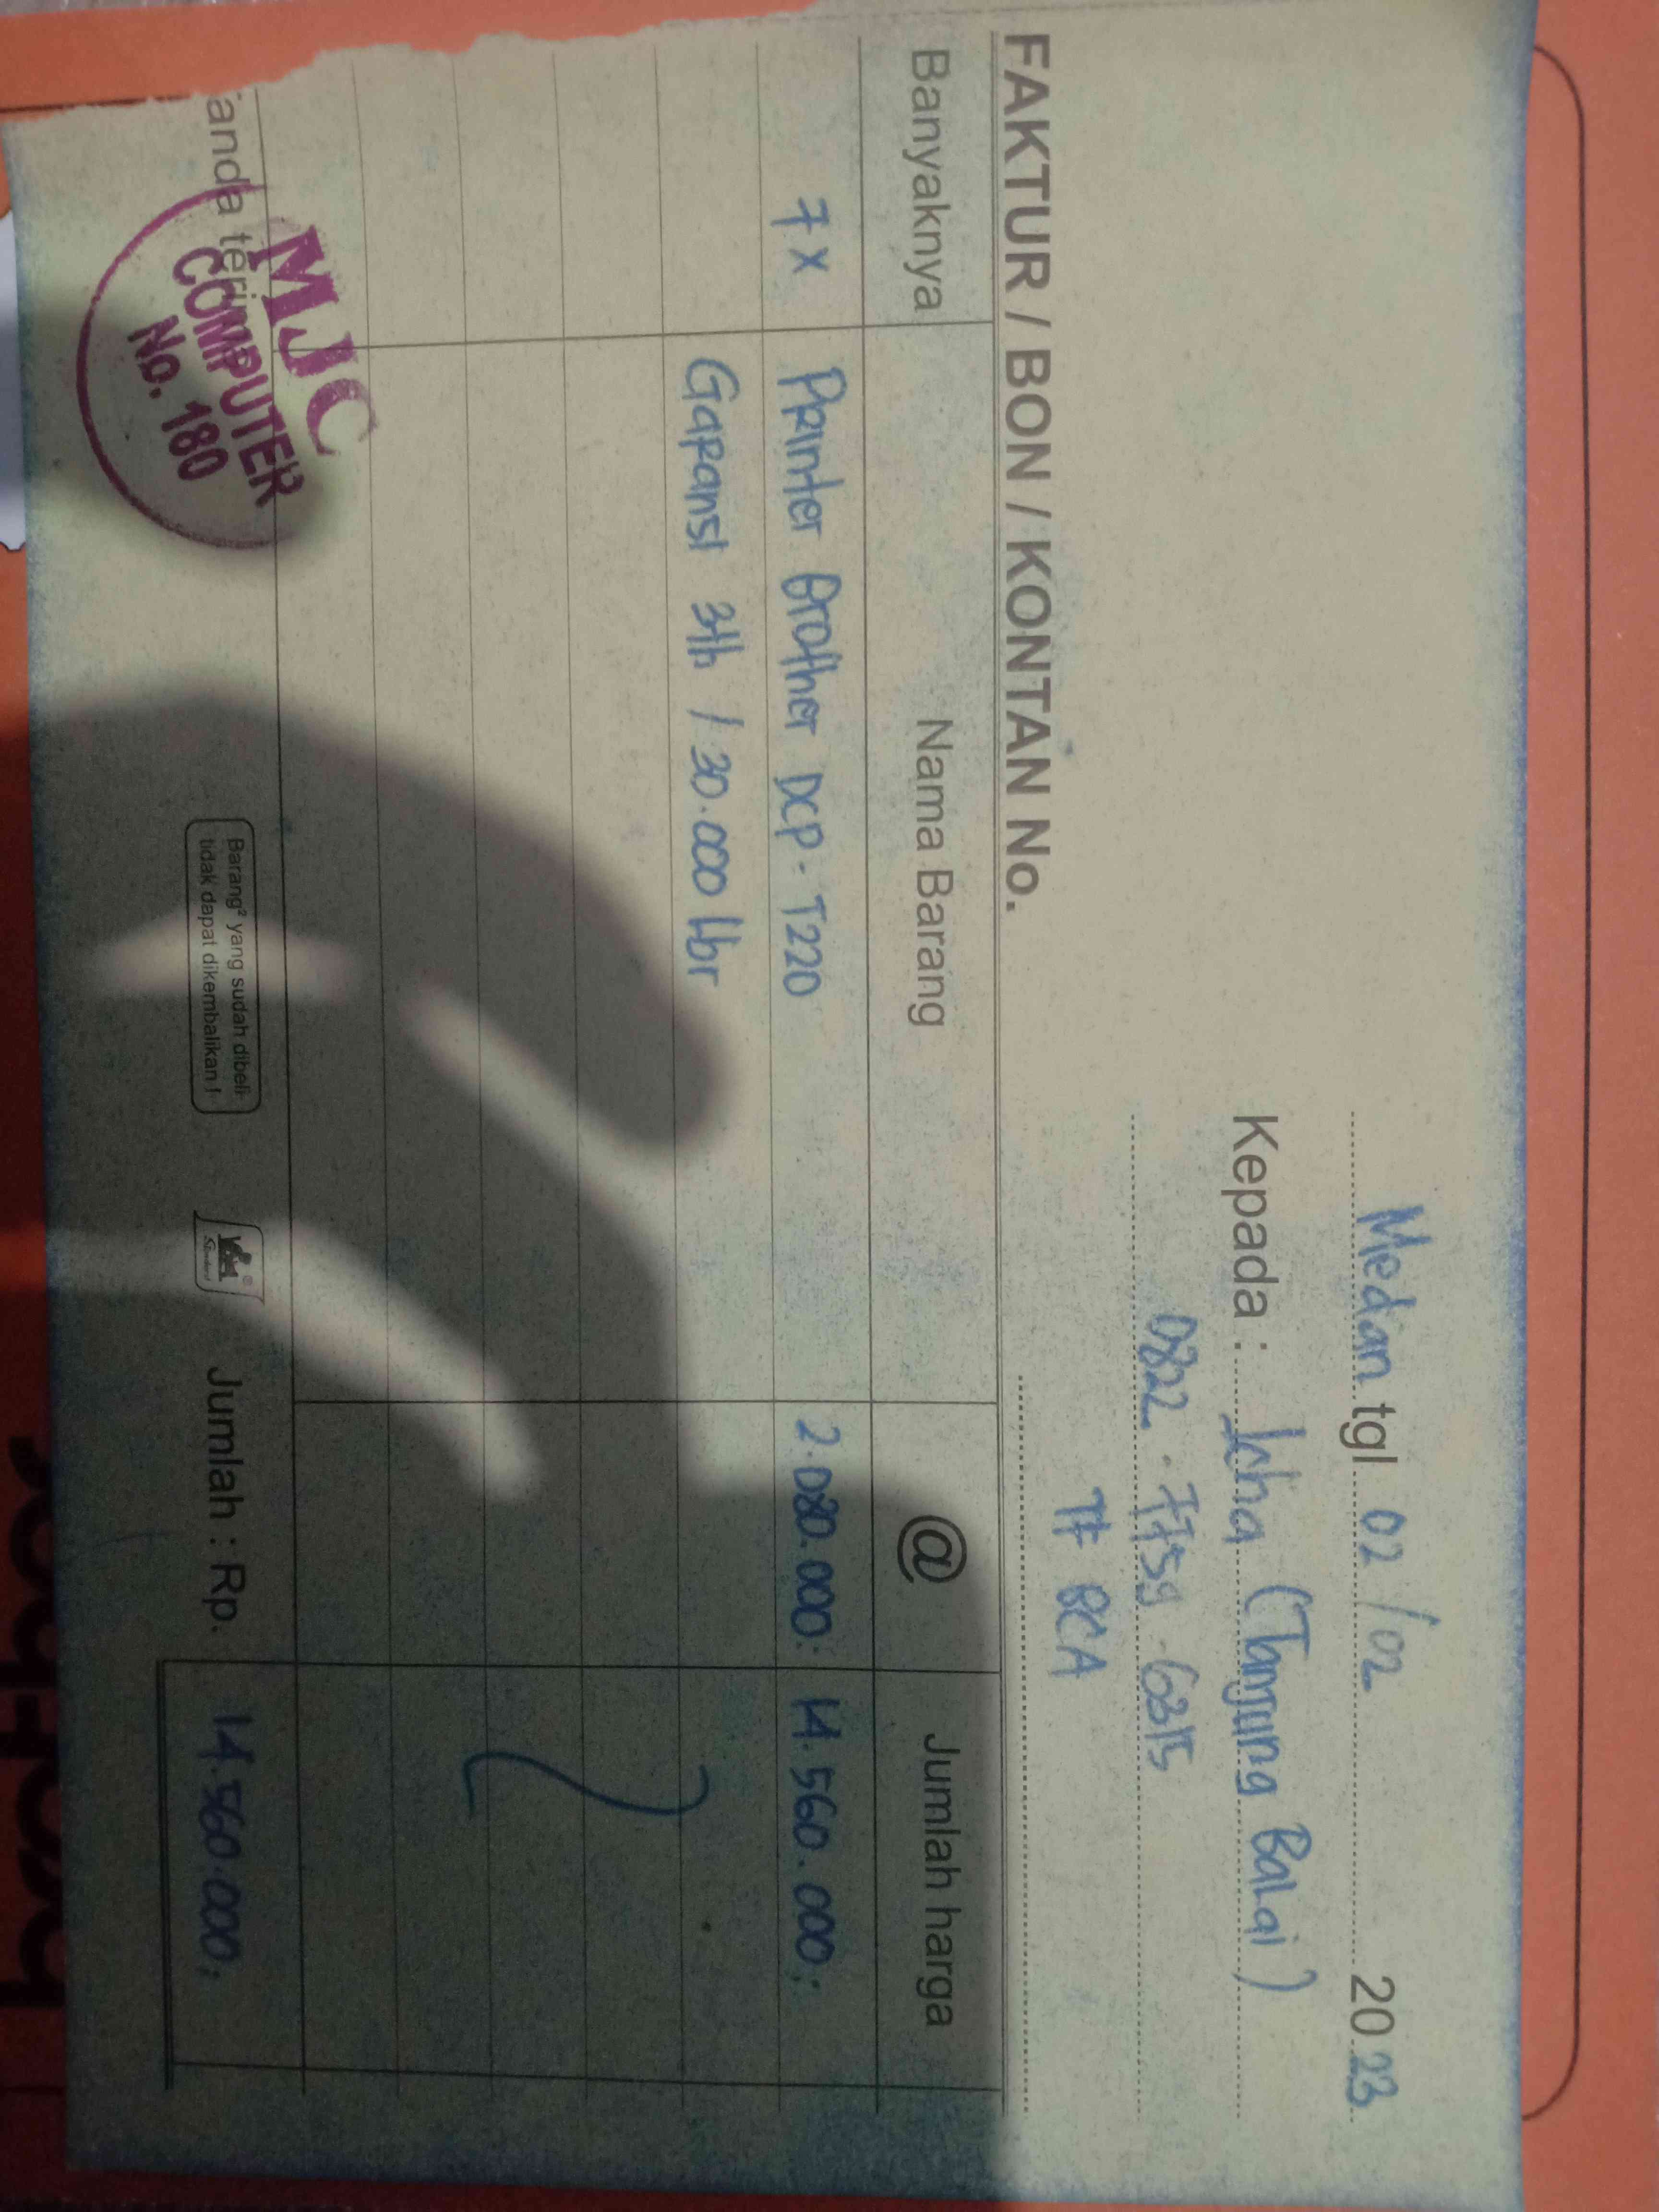 Medan tgl 02/02 2023
Kepada : Icha (Tanjung Balai)
0822 . 7759 . 6315
TF BCA
FAKTUR / BON / KONTAN No.
Banyaknya Nama Barang @ Jumlah harga
7x Printer Brother DCP - T220 2.080.000; 14.560.000;
Garansi 3th / 30.000 lbr
anda terima
MJC
COMPUTER
No. 180
Barang² yang sudah dibeli
tidak dapat dikembalikan !
Jumlah : Rp. 14.560.000;
brother